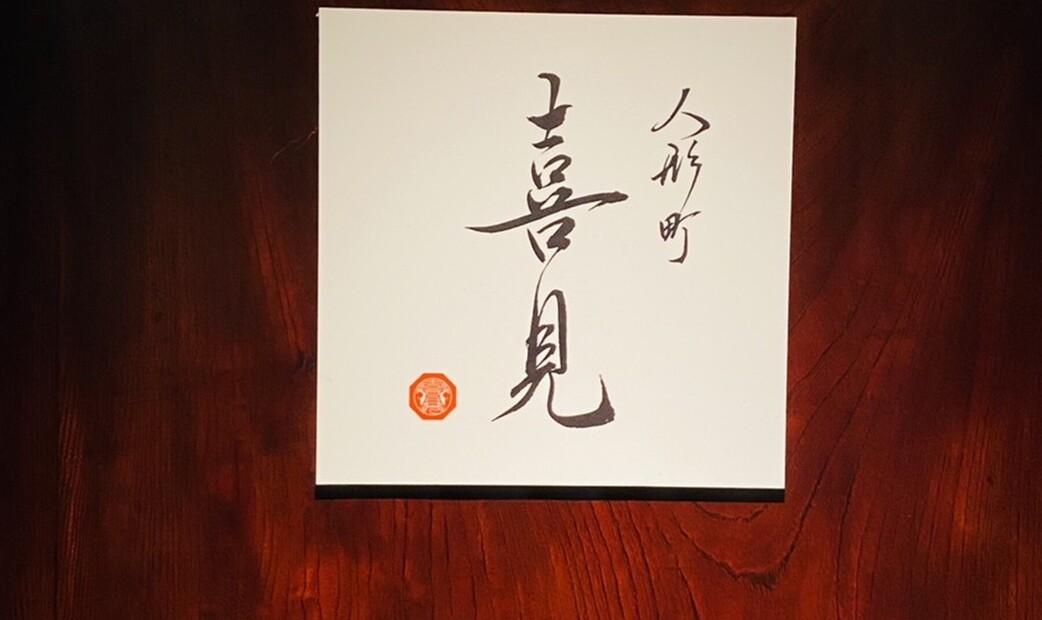 人形町
喜見